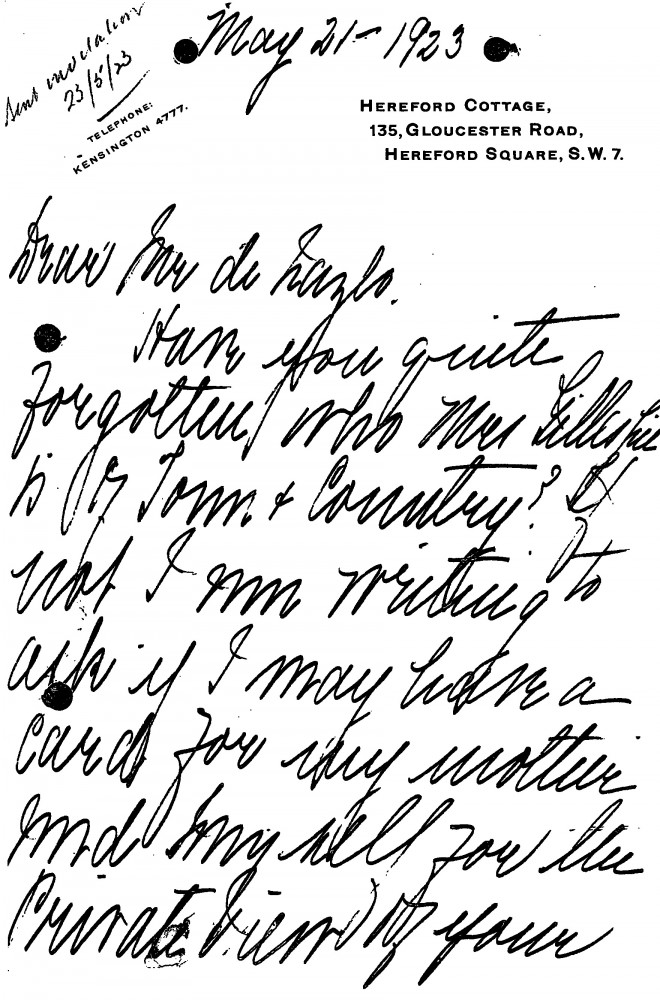 Sent invitation
23/5/23
May 21 - 1923
TELEPHONE:
KENSINGTON 4777.
HEREFORD COTTAGE,
135, GLOUCESTER ROAD,
HEREFORD SQUARE, S.W. 7.
Dear Mr de Lazlo.
Have you quite
forgotten who Mrs Gillespie
is of Town & Country? If
not I am writing to
ask if I may have a
card for my mother
and myself for the
Private View of your